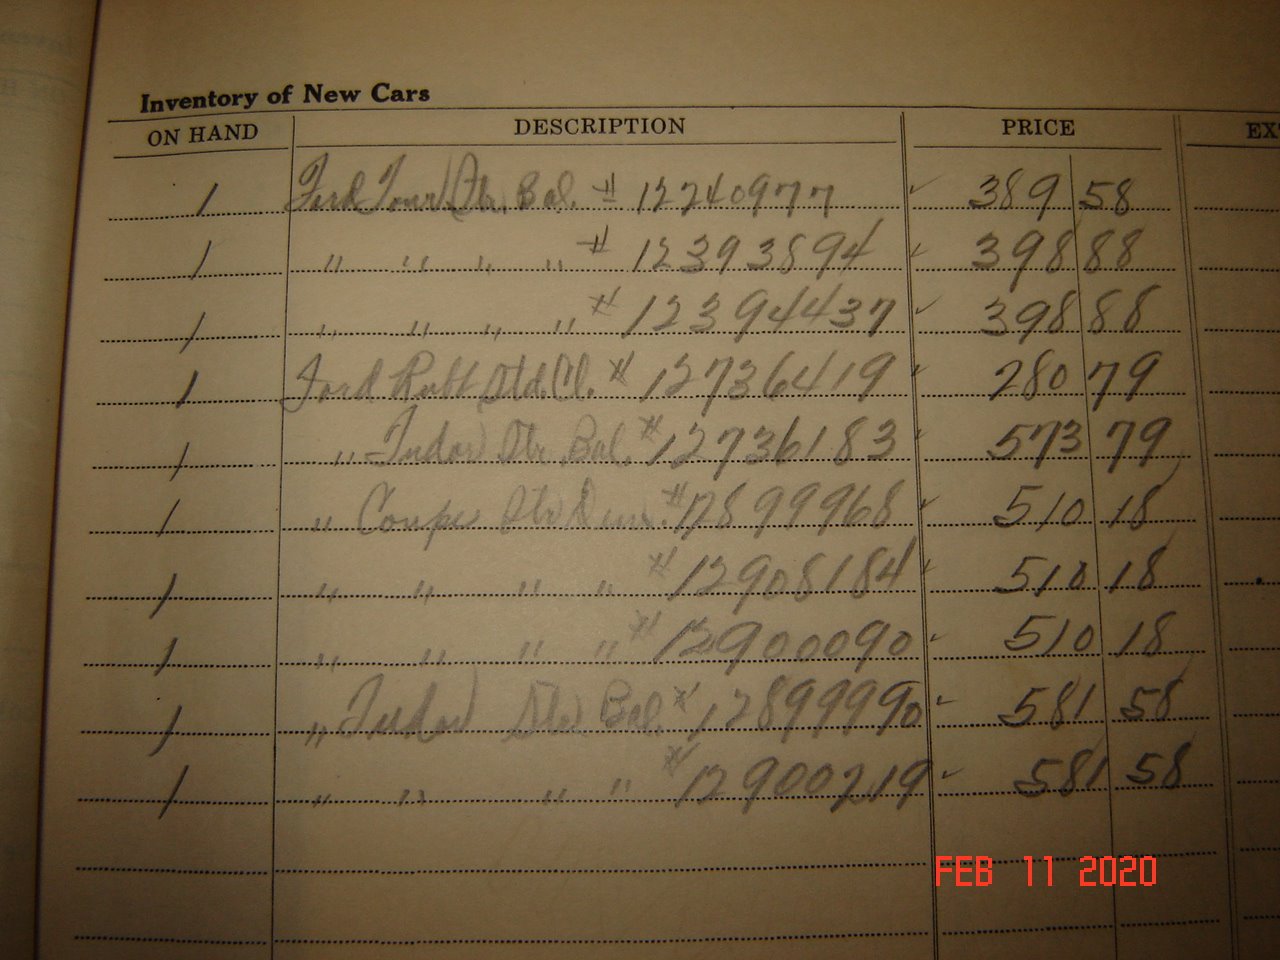 Inventory of New Cars
ON HAND DESCRIPTION PRICE EX
1 Ford Tour. Str. Bal. # 12240977 ✓ 389 58
1 " " " " # 12393894 ✓ 398 88
1 " " " " # 12394437 ✓ 398 88
1 Ford Std. Cl. # 12736419 ✓ 280 79
1 " Tudor Str. Bal. # 12736183 ✓ 573 79
1 " Coupe Str # 12899968 ✓ 510 18
1 " " " " # 12908184 ✓ 510 18
1 " " " " # 12900090 ✓ 510 18
1 " Tudor Str Bal. # 12899990 ✓ 581 58
1 " " " " # 12900219 ✓ 581 58
FEB 11 2020